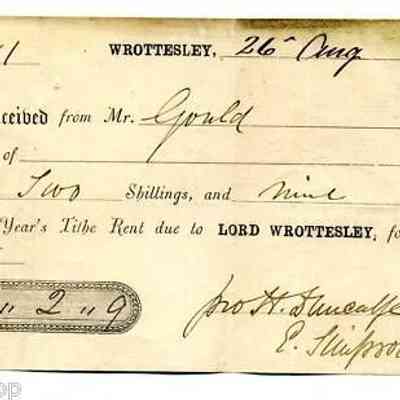 1 WROTTESLEY, 26" Aug
ceived from Mr. Gould
of
Two Shillings, and nine
Year's Tithe Rent due to LORD WROTTESLEY, fo
" 2 " 9
pro H. Duncalfe
E. Simpson
op